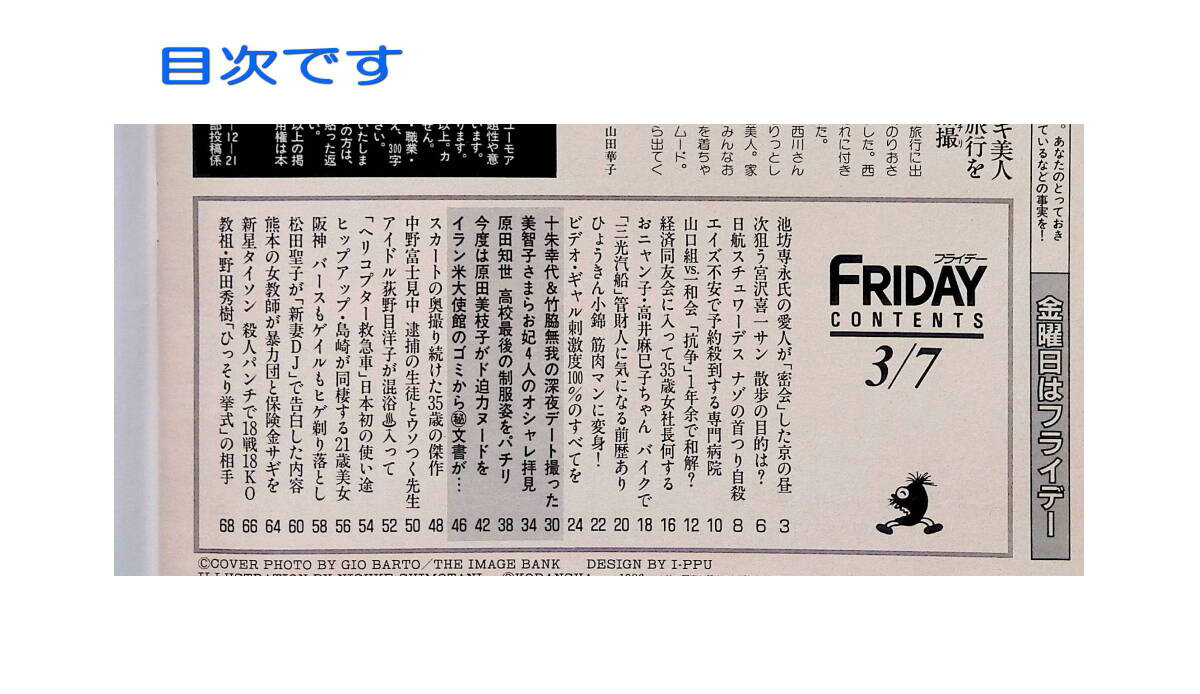 目次です
ているなどの事実を!
。あなたのとっておき
金曜日はフライデー
キ美人
旅行を
撮
旅行に出
のりおさ
した。西
れに付き
た。
西川さん
りっとし
美人。家
みんなお
を着ちゃ
ムード。
ら出てく
山田華子
ユーモア
題性や意
います。
ります。
以上。カ
せん。
・職業・
え、300字
さい。
いたしま
の方は、
貼った返
い。
以上の掲
用権は本
12—21
部投稿係
フライデー
FRIDAY
CONTENTS
3/7
池坊専永氏の愛人が「密会」した京の昼 3
次狙う宮沢喜一サン 散歩の目的は? 6
日航スチュワーデス ナゾの首つり自殺 8
エイズ不安で予約殺到する専門病院 10
山口組vs.一和会「抗争」1年余で和解? 12
経済同友会に入って35歳女社長何する 16
おニャン子・高井麻巳子ちゃん バイクで 18
「三光汽船」管財人に気になる前歴あり 20
ひょうきん小錦 筋肉マンに変身! 22
ビデオ・ギャル刺激度100%のすべてを 24
十朱幸代&竹脇無我の深夜デート撮った 30
美智子さまらお妃4人のオシャレ拝見 34
原田知世 高校最後の制服姿をパチリ 38
今度は原田美枝子がド迫力ヌードを 42
イラン米大使館のゴミから㊙文書が… 46
スカートの奥撮り続けた35歳の傑作 48
中野富士見中 逮捕の生徒とウソつく先生 50
アイドル荻野目洋子が混浴♨入って 52
「ヘリコプター救急車」日本初の使い途 54
ヒップアップ・島崎が同棲する21歳美女 56
阪神 バースもゲイルもヒゲ剃り落とし 58
松田聖子が「新妻DJ」で告白した内容 60
熊本の女教師が暴力団と保険金サギを 64
新星タイソン 殺人パンチで18戦18KO 66
教祖・野田秀樹「ひっそり挙式」の相手 68
©COVER PHOTO BY GIO BARTO/THE IMAGE BANK DESIGN BY I-PPU